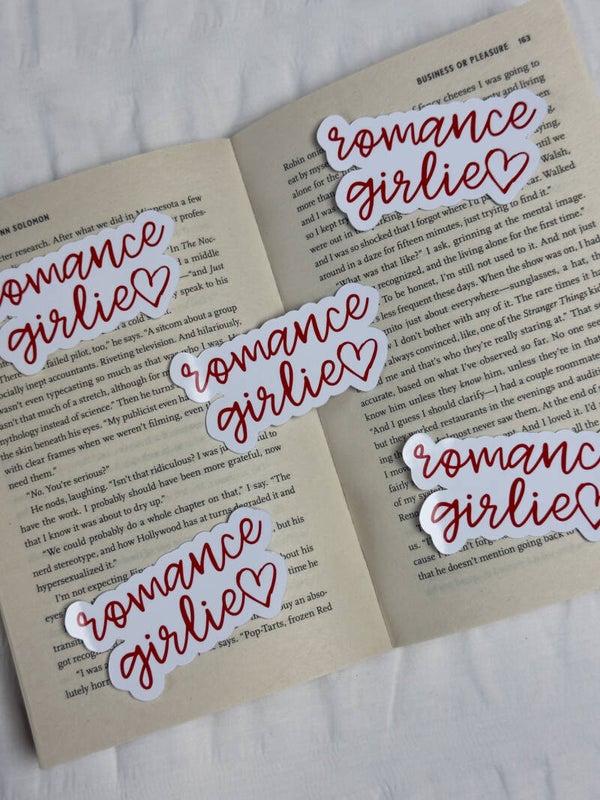 NN SOLOMON
cter research. After what we did in Minnesota a few
profes-
In The Noc-
I a middle
—and Just
speak to his
a cold
failed pilot, too," he says. "A sitcom about a group
ally inept accountants. Riveting television. And hilariously,
wasn't even typecasting so much as was. So I was
sn't that much of a stretch, although for
mythology instead of science." Then he turn
the skin beneath his eyes. "My publicist even ha
with clear frames when we weren't filming, even
need them."
"No. You're serious?"
He nods, laughing. "Isn't that ridiculous? I was just
to
have the work. I probably should have been more grateful, now
that I know it was about to dry up."
"We could probably do a whole chapter on that," I say. "The
nerd stereotype, and how Hollywood has at turns degraded it and
hypersexualized it."
I'm not expecting
but his
eyes
bout his
time he
transiti
got recog
buy an abso-
"I was
says. "Pop-Tarts, frozen Red
lutely horr
romance
girlie
romance
girlie
romance
girlie
BUSINESS OR PLEASURE 163
of fancy cheeses I was going to
and living
Robin onl
ying,
eat by mysel
until we
alone for the
Walsh,
more than
Walked
and I was
so I kept
just trying to find it."
were out in
and I was so shocked that I forgot where I'd
around in a daze for fifteen minutes,
"What was that like?" I ask, grinning at the mental image.
recognized, and the living alone for the first time."
to be honest, I'm still not used to it. And not just
less frequent these days. When the show was on, I had
nito just about everywhere—sunglasses, a hat, th
I don't bother with any of it. The rare times it ha
always convinced, like, one of the Stranger Things kid
d me and that's who they're really staring at." That s
accurate, based on what I've observed so far. No one see
know him unless they know him, unless they're in that
"And I guess I should clarify—I had a couple roommate
but they worked restaurants in the evenings and auditio
so I almost never saw them. At the end of
And I loved it. I'd
I mov
all the
fairly
of my
Ren
us. "
cause I
that he doesn't mention going back to
romance
girlie
romance
girlie